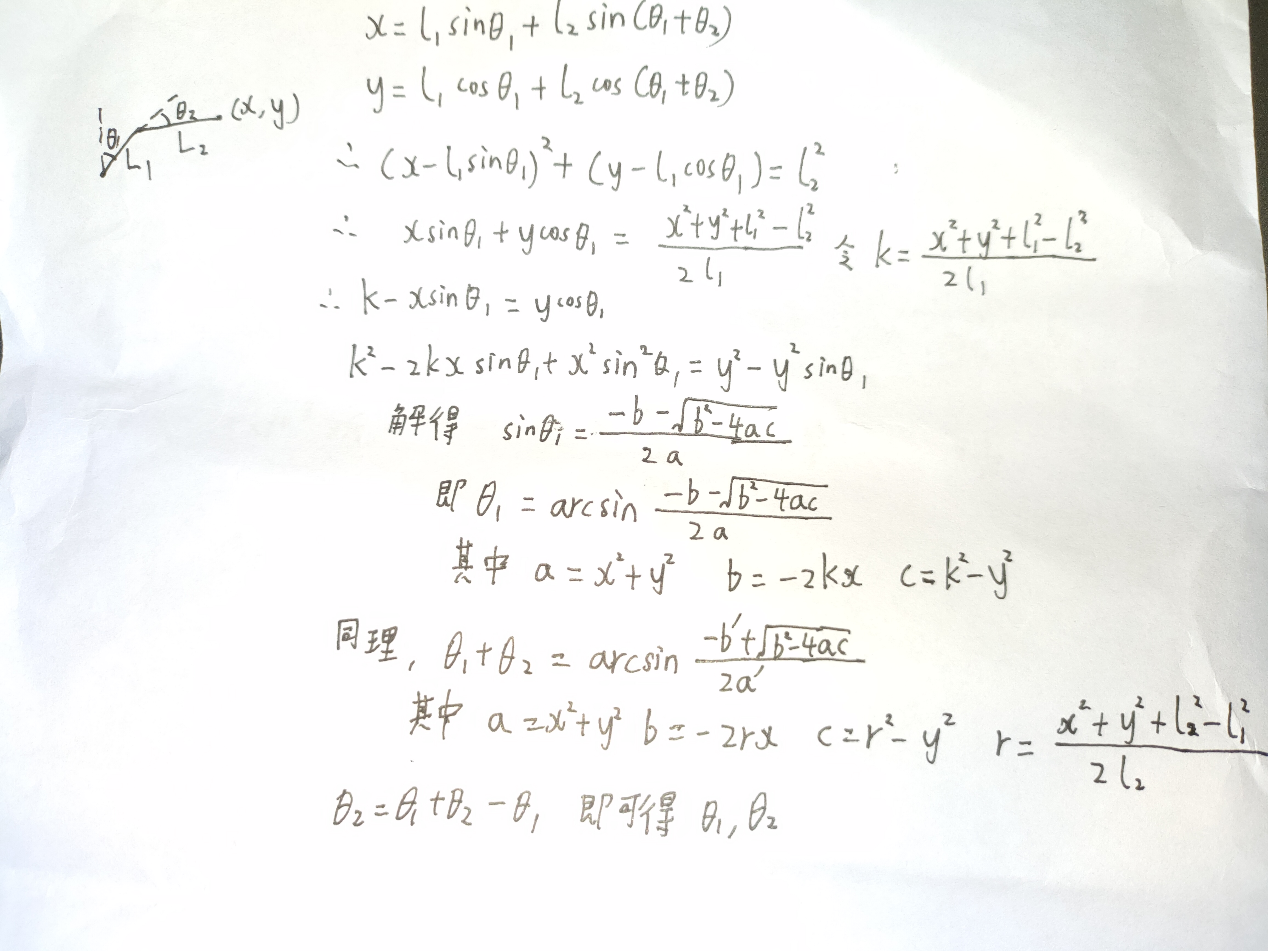 x = l₁ sinθ₁ + l₂ sin(θ₁+θ₂)
y = l₁ cosθ₁ + l₂ cos(θ₁+θ₂)
θ₁ L₁ θ₂ L₂ (x, y)
∴ (x-l₁sinθ₁)² + (y-l₁cosθ₁) = l₂²
∴ xsinθ₁ + ycosθ₁ = (x²+y²+l₁²-l₂²)/(2l₁) 令 k = (x²+y²+l₁²-l₂²)/(2l₁)
∴ k - xsinθ₁ = ycosθ₁
k² - 2kx sinθ₁ + x² sin²θ₁ = y² - y² sinθ₁
解得 sinθ₁ = (-b-√(b²-4ac))/(2a)
即 θ₁ = arcsin (-b-√(b²-4ac))/(2a)
其中 a = x²+y² b = -2kx c = k²-y²
同理, θ₁+θ₂ = arcsin (-b′+√(b²-4ac))/(2a′)
其中 a = x²+y² b = -2rx c = r²-y² r = (x²+y²+l₂²-l₁²)/(2l₂)
θ₂ = θ₁+θ₂-θ₁ 即可得 θ₁, θ₂